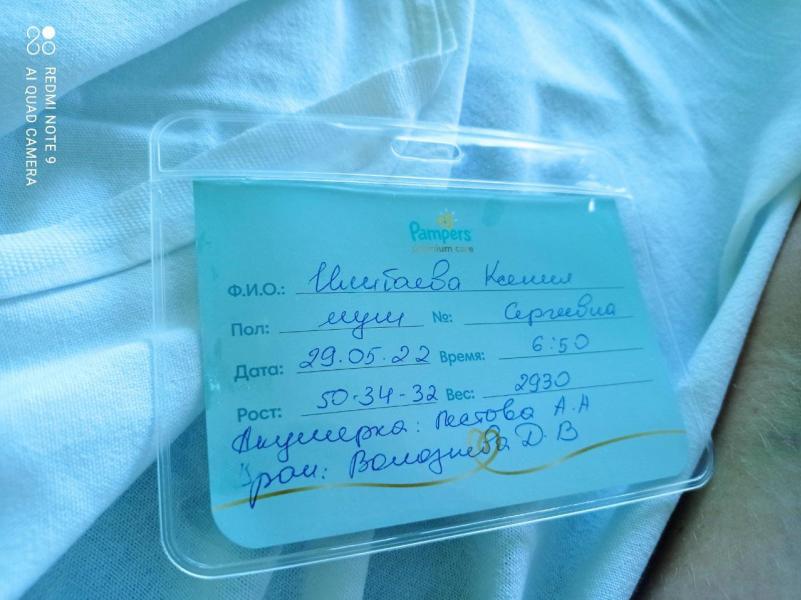 REDMI NOTE 9
AI QUAD CAMERA
Pampers
premium care
Ф.И.О.: Ксения
Пол: муж №: Сергеевна
Дата: 29.05.22 Время: 6:50
Рост: 50-34-32 Вес: 2930
Акушерка: Пестова А.Н
Врач: Д.В